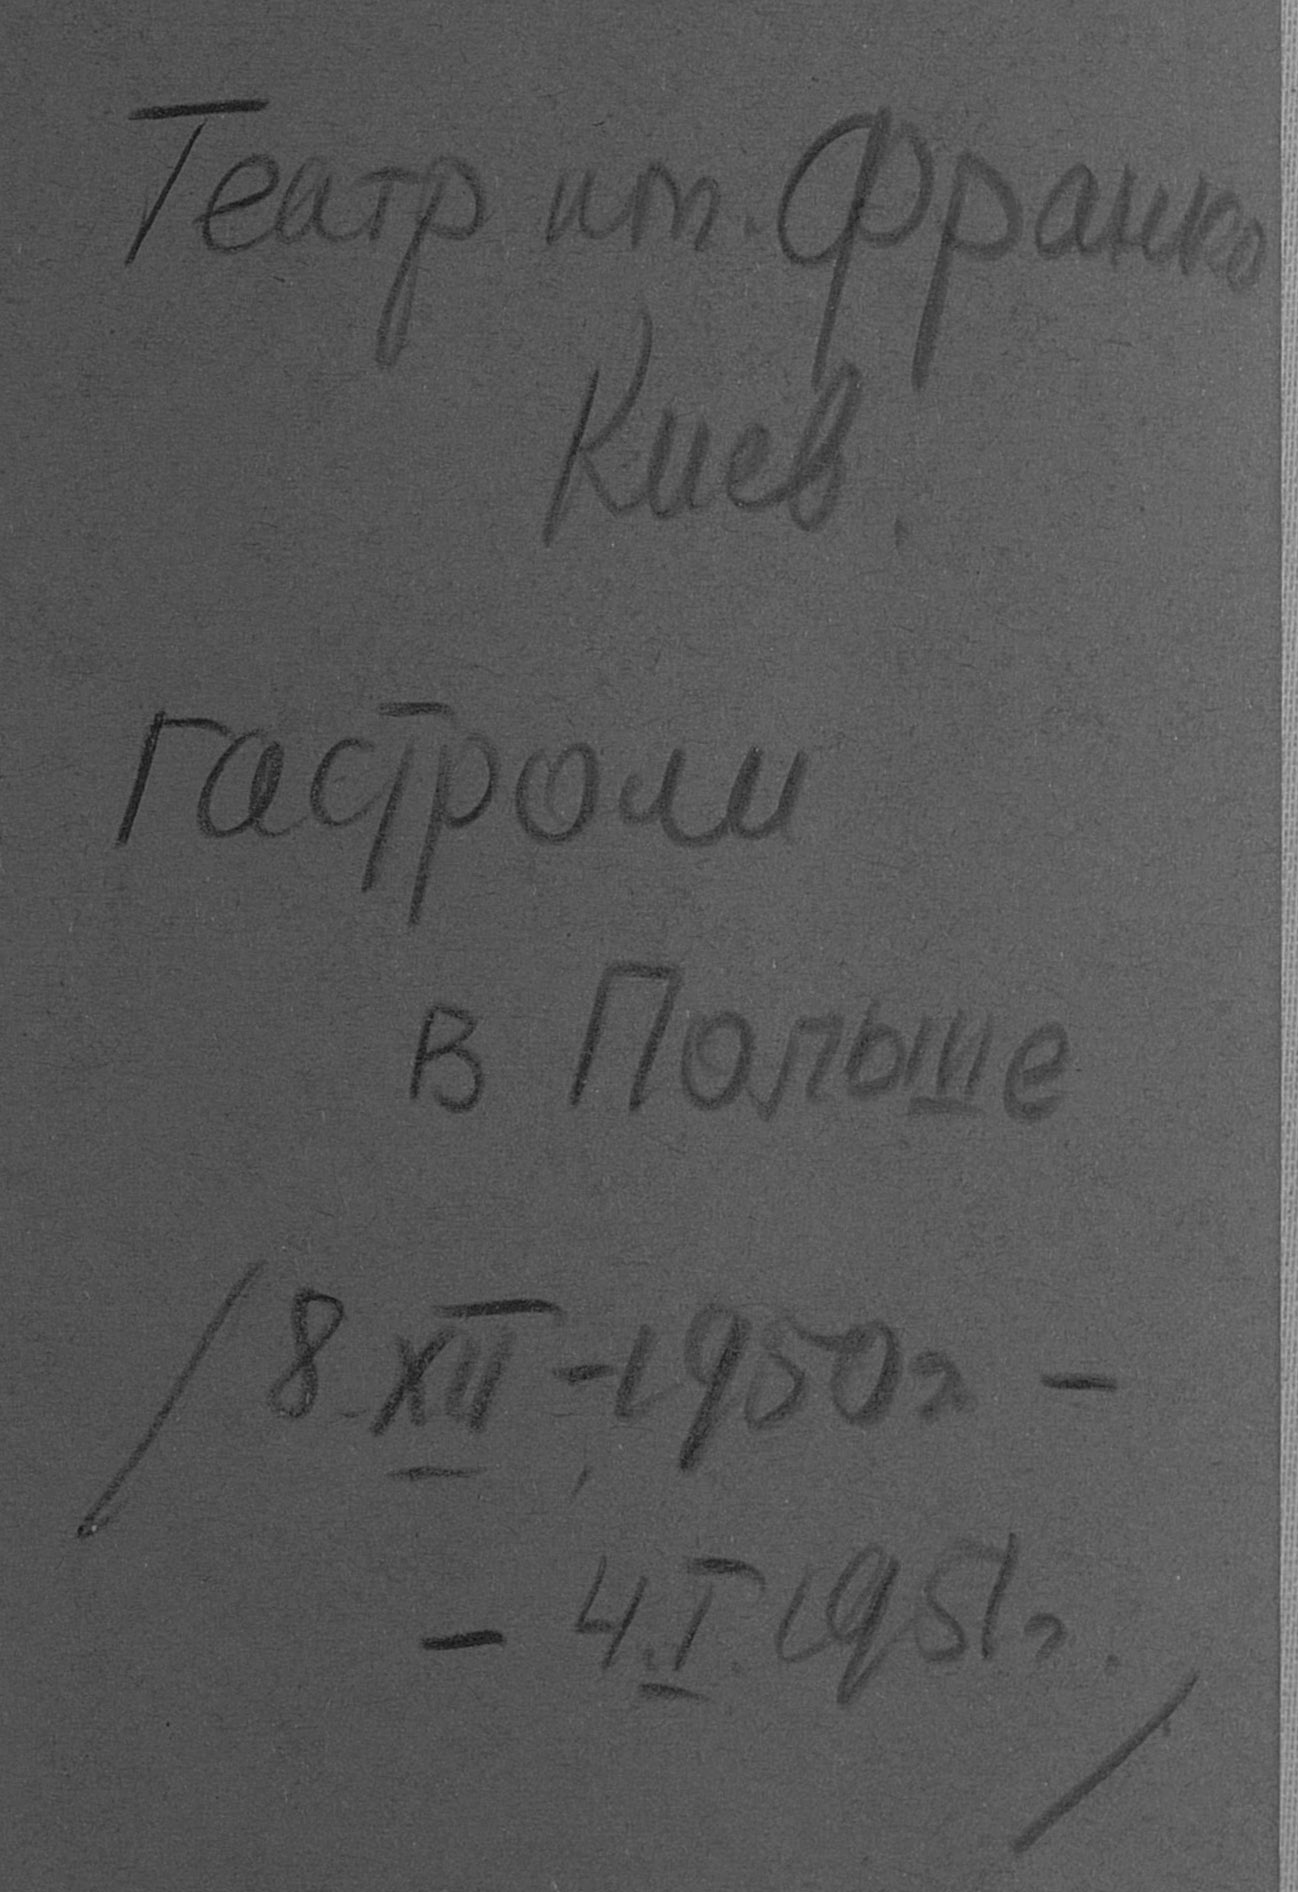 Театр им. Франко
Киев.
гастроли
в Польше
/8.XII-1950г. -
- 4.I.1951г./